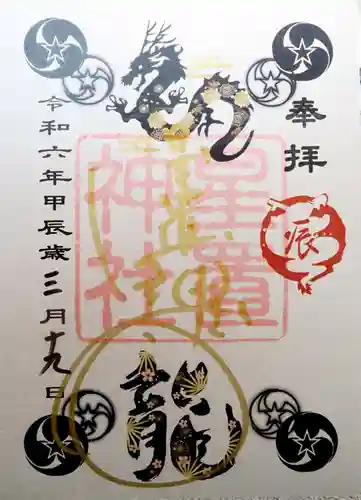 奉拝
辰
星置神社
龍
令和六年甲辰歳三月十九日